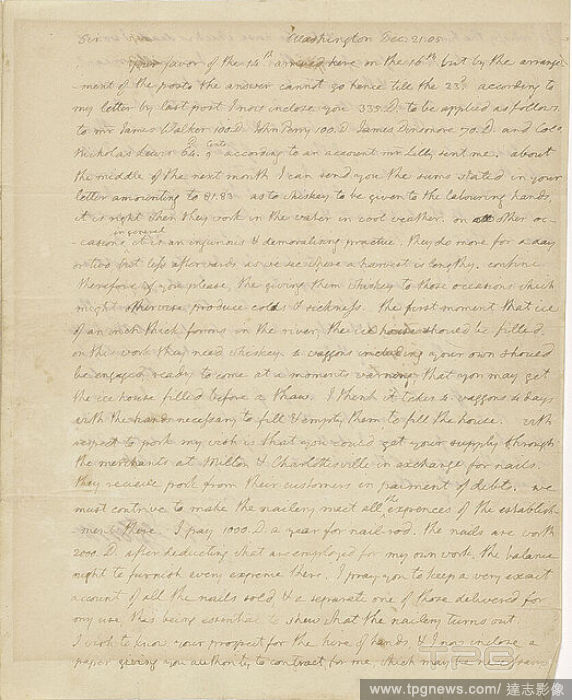 Sir Washington Dec. 21. 05.
Your favor of the 14th arrived here on the 16th but by the arrange-
-ment of the posts the answer cannot go hence till the 23d. according to
my letter by last post I now inclose you 335 D. to be applied as follows
to mr James Walker 100. D. John Perry 100. D. James Dinsmore 70. D. and Colo.
Nicholas Lewis 64. D 9 Cents according to an account mr Lilly sent me. about
the middle of the next month I can send you the sums stated in your
letter amounting to 81.83 as to whiskey to be given to the labouring hands,
it is right when they work in the water in cool weather. on other oc-
-casions in general it is an injurious & demoralising practice. they do more for a day
or two but less afterwards as we see where a harvest is lengthy. confine
therefore if you please, the giving them whiskey to those occasions which
might otherwise produce colds & sickness. the first moment that ice
of an inch thick forms in the river, the ice house should be filled.
in this work they need whiskey. 4. waggons including your own should
be engaged ready to come at a moments warning that you may get
the ice house filled before a thaw. I think it takes 4. waggons 4 days
with the hands necessary to fill & empty them to fill the house. with
respect to pork my wish is that you could get your supply through
the merchants at Milton & Charlottesville in exchange for nails.
they recieve pork from their customers in paiment of debts. we
must contrive to make the nailery meet all the expences of the establish-
-ment there. I pay 1000. D. a year for nail rod. the nails are worth
2000. D. after deducting what are employed for my own work. the balance
ought to furnish every expence there. I pray you to keep a very exact
account of all the nails sold, & a separate one of those delivered for
my use this being essential to shew what the nailery turns out.
I wish to know your prospect for the hire of hands & I now inclose a
paper giving you authority to contract for me, which may be necessary
TPG
www.tpgnews.com | 達志影像